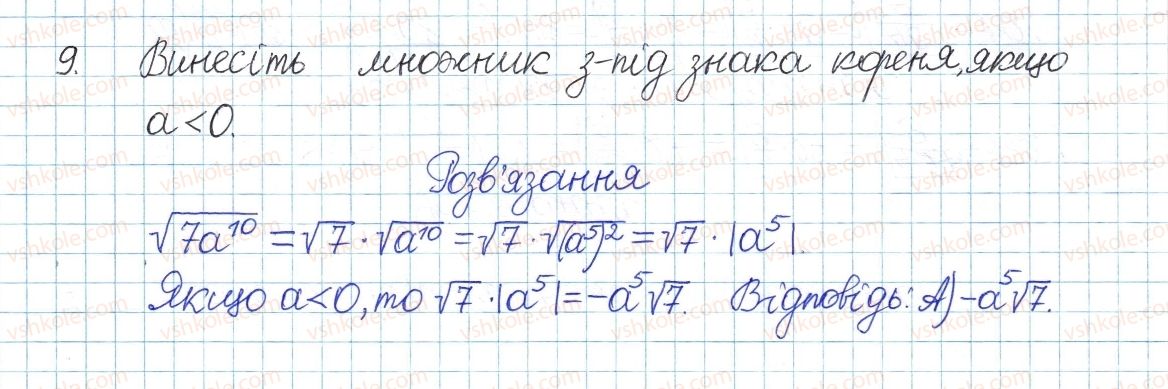 9. Винесіть множник з-під знака кореня, якщо
a<0.
Розв'язання
√(7a¹⁰) = √7 · √(a¹⁰) = √7 · √((a⁵)²) = √7 · |a⁵|.
Якщо a<0, то √7 · |a⁵| = -a⁵√7. Відповідь: А) -a⁵√7.